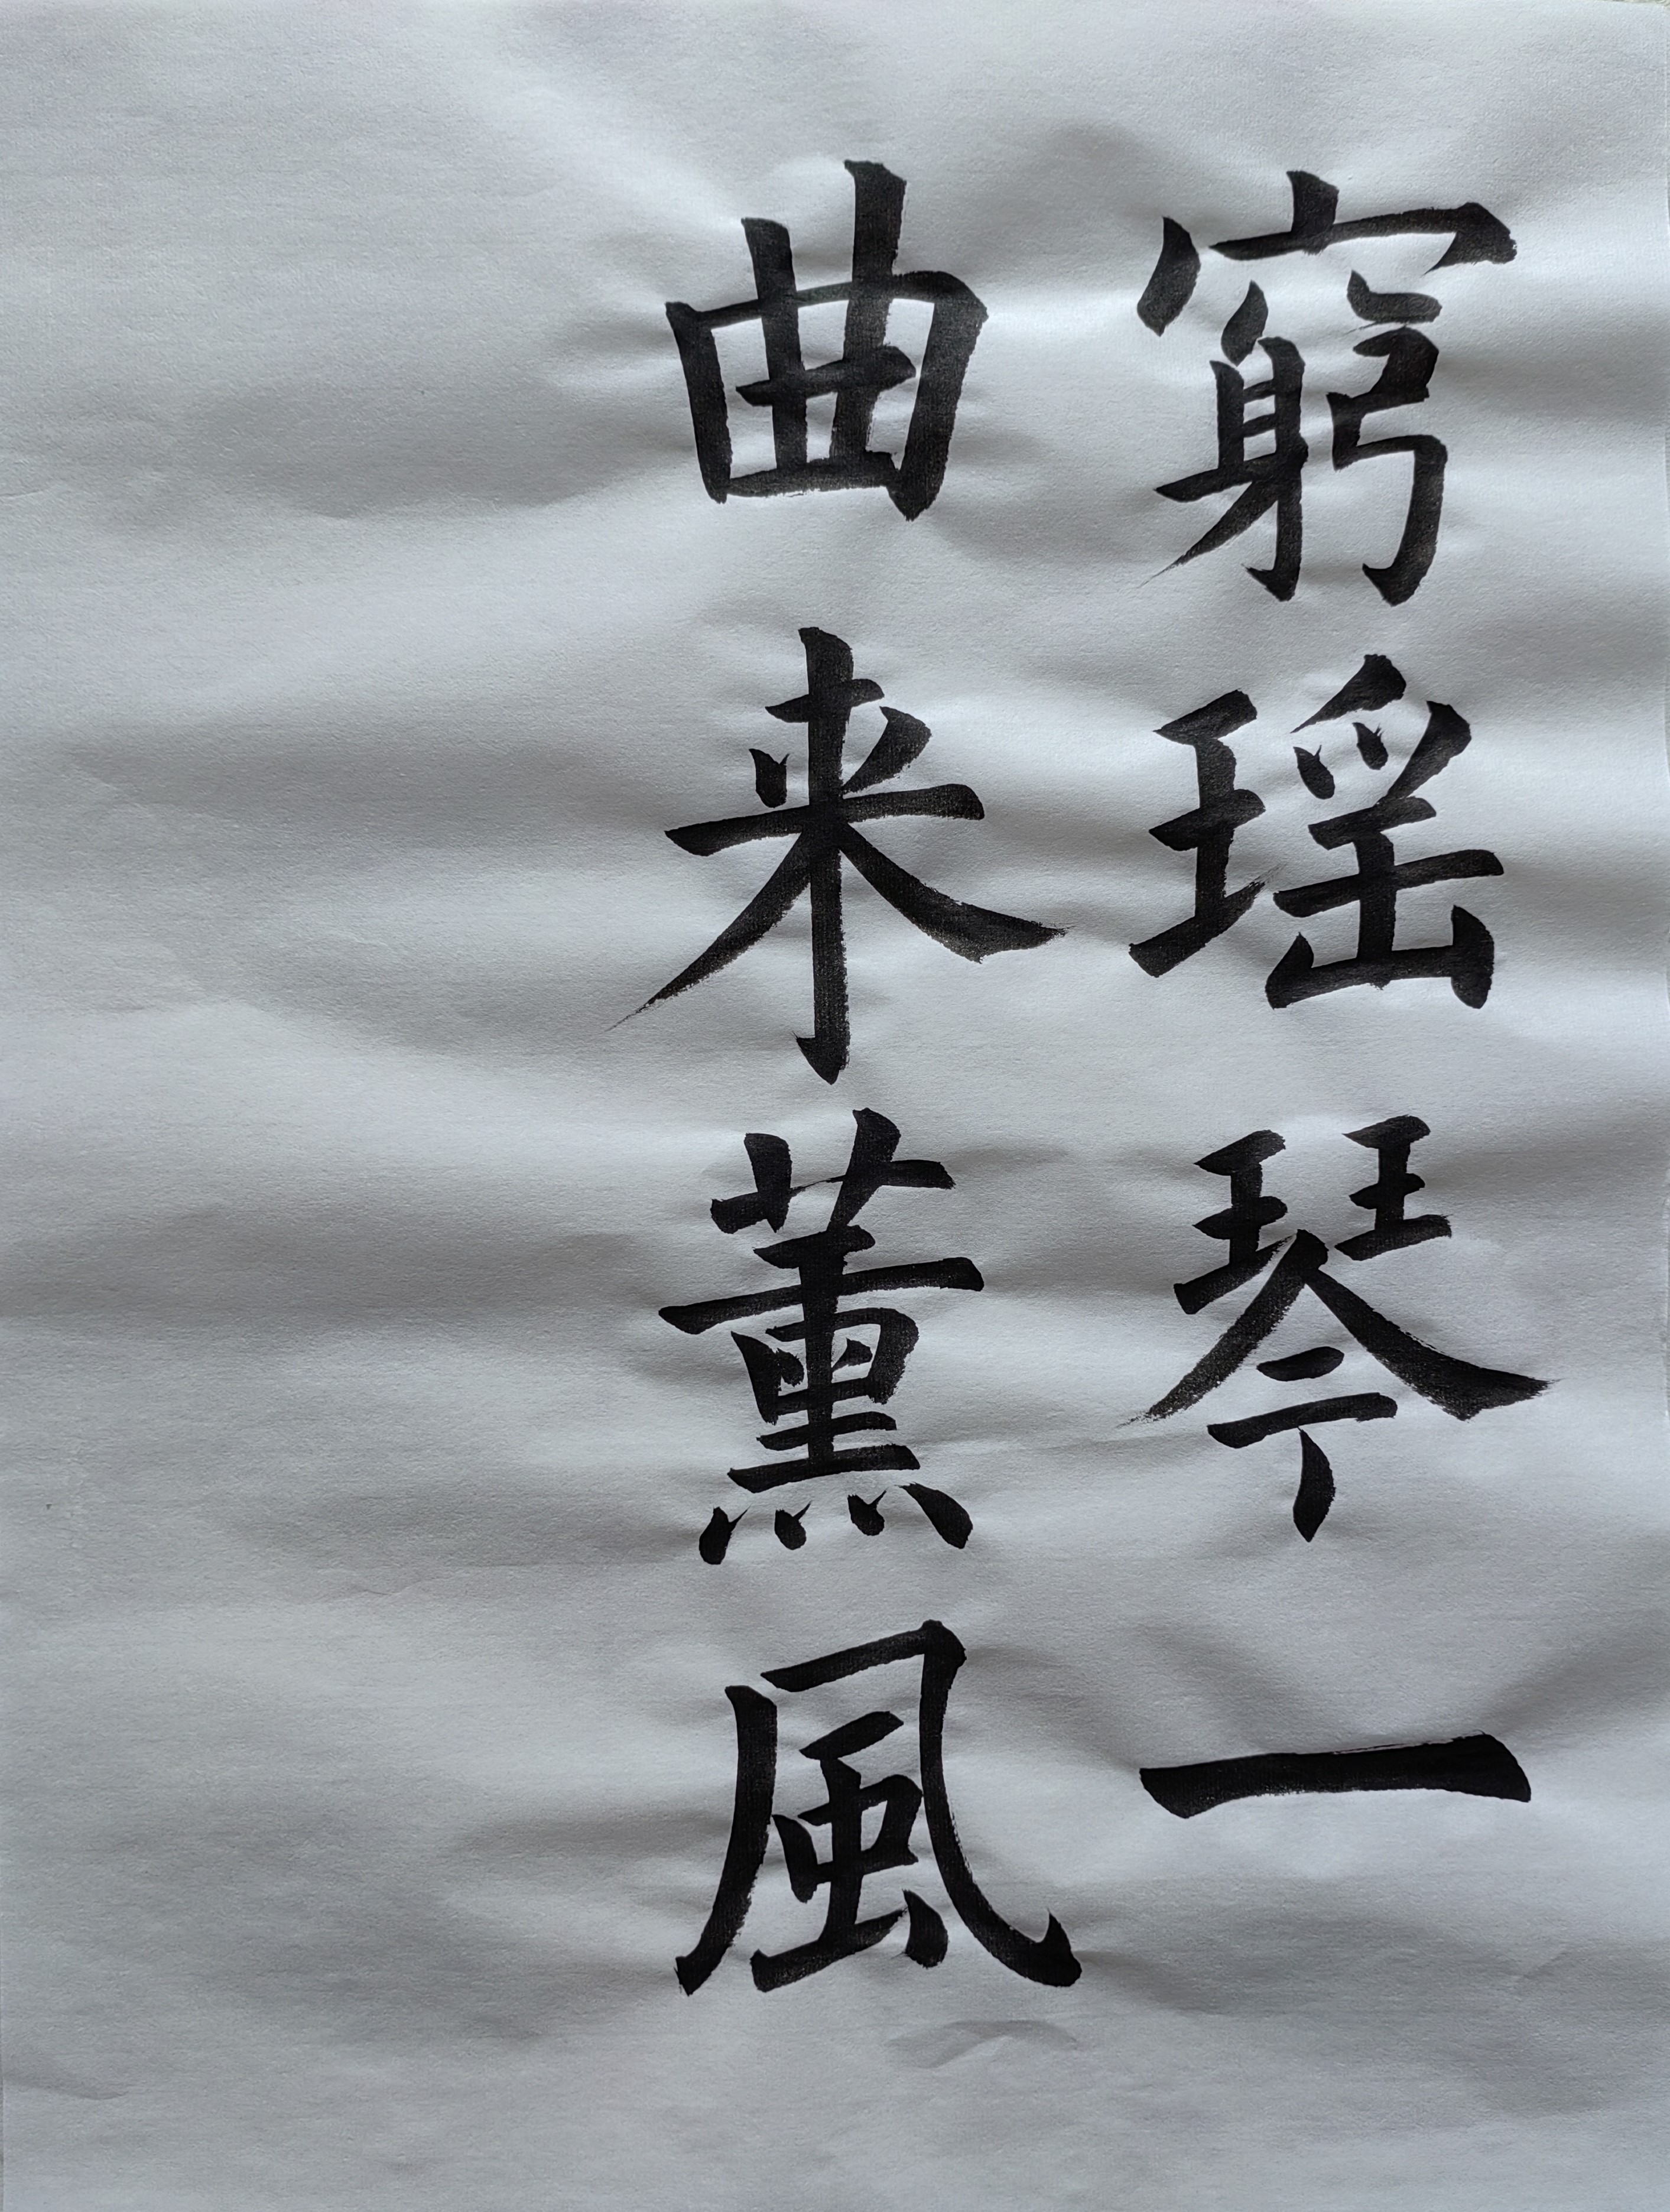 窮瑶琴一
曲来薫風